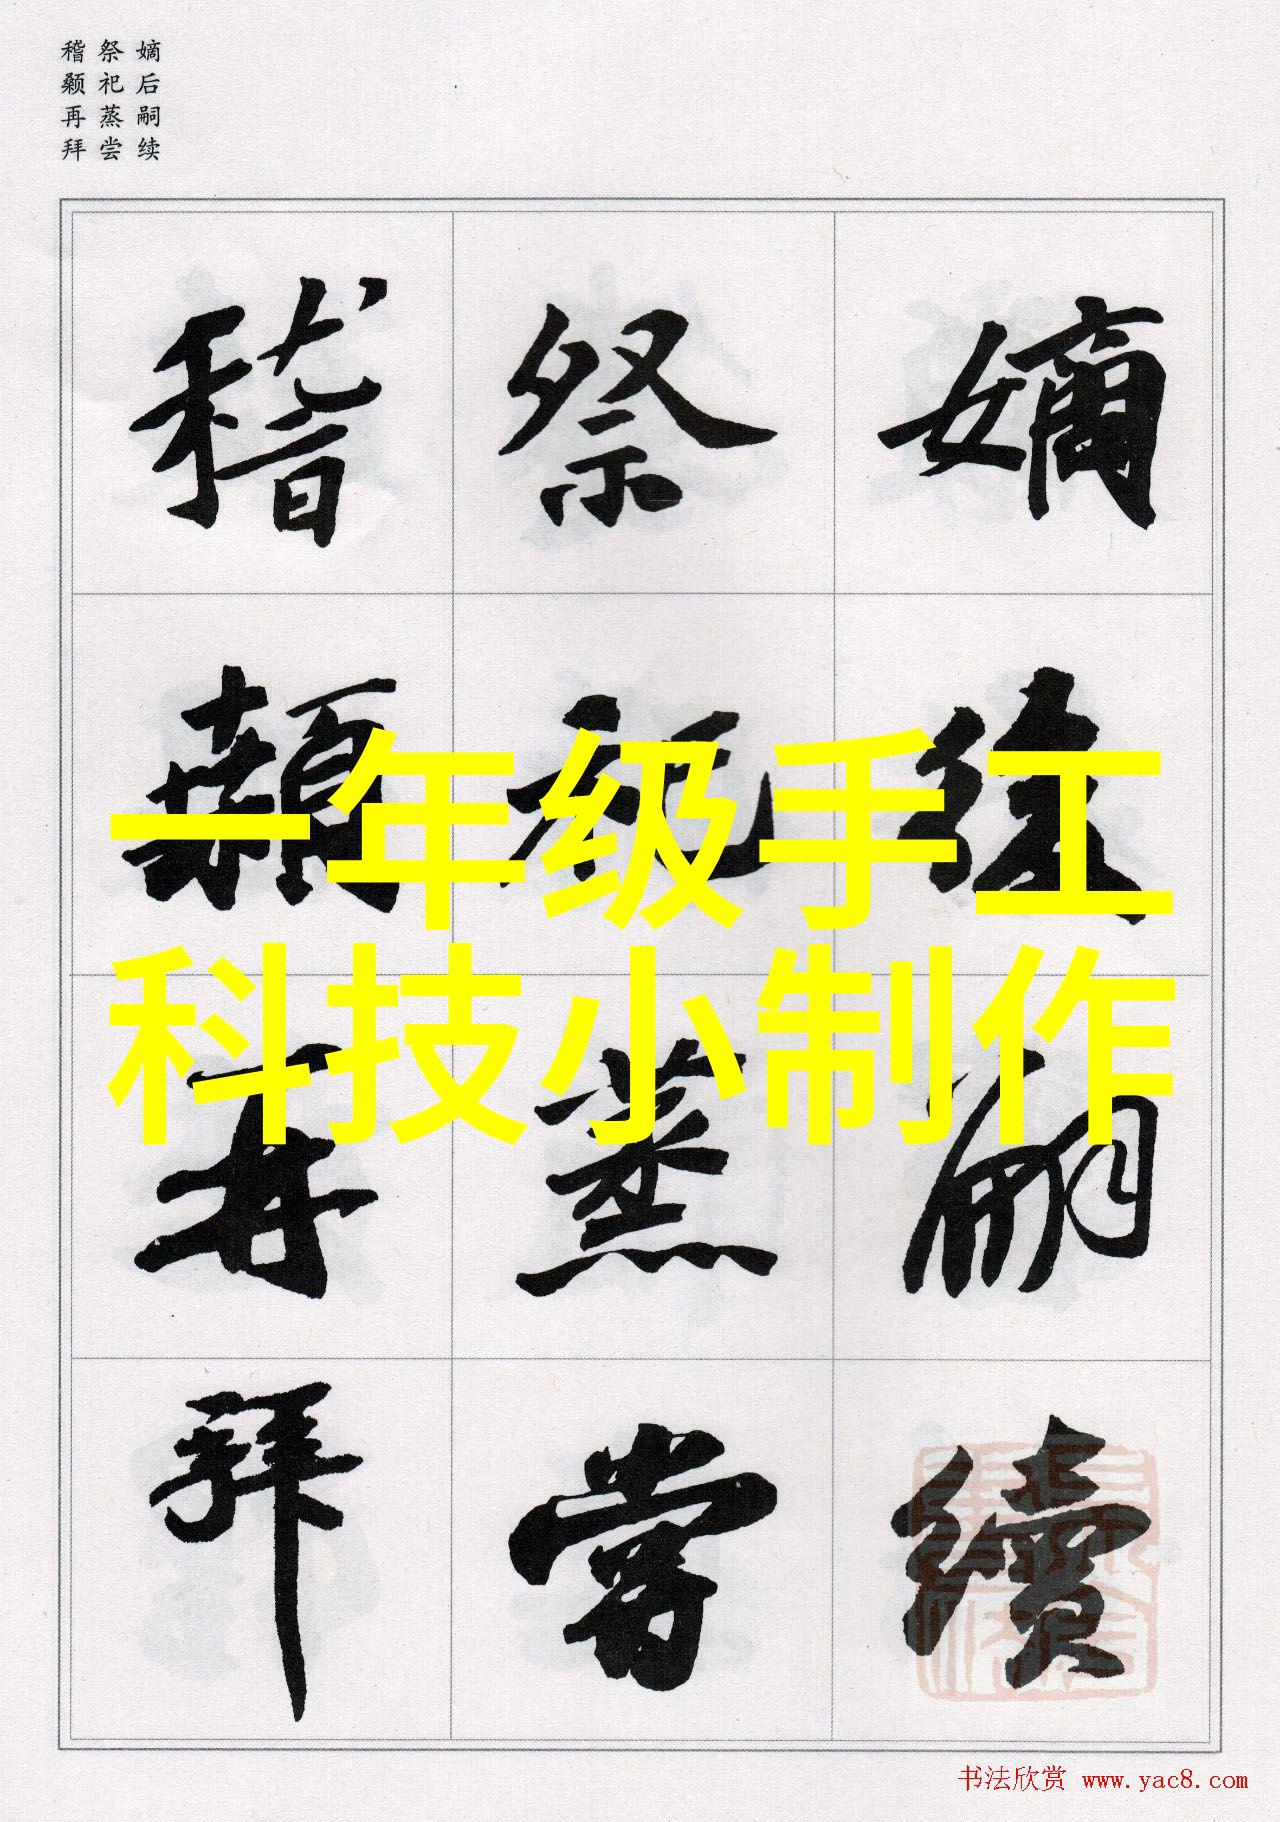 嫡后嗣续
祭祀蒸尝
稽颡再拜
嫡後嗣續
祭祀蒸嘗
稽顙再拜
一年级手工
科技小制作
书法欣赏 www.yac8.com